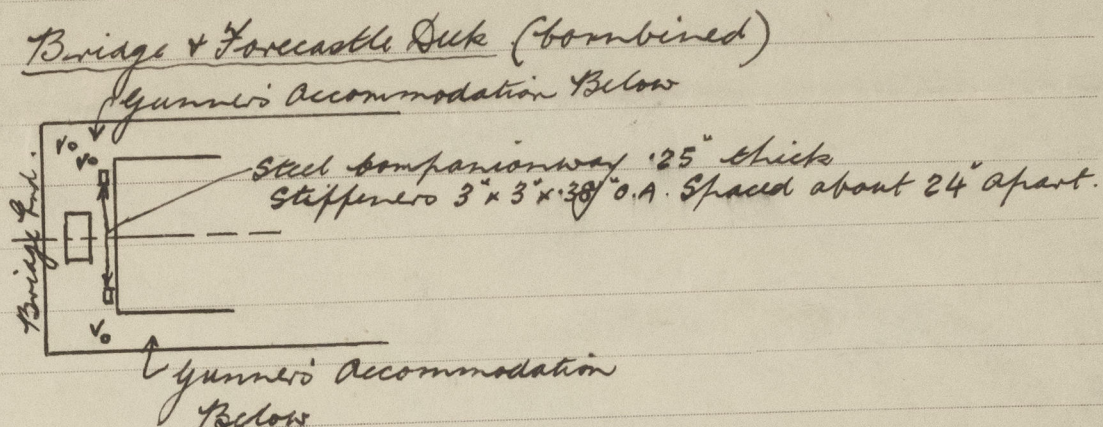 Bridge & Forecastle Deck (combined)
Gunner's Accommodation Below
Vo
Vo
Steel Companionway .25" thick
Stiffeners 3" x 3" x .38" O.A. Spaced about 24" apart.
Bridge End.
Vo
Gunner's Accommodation
Below